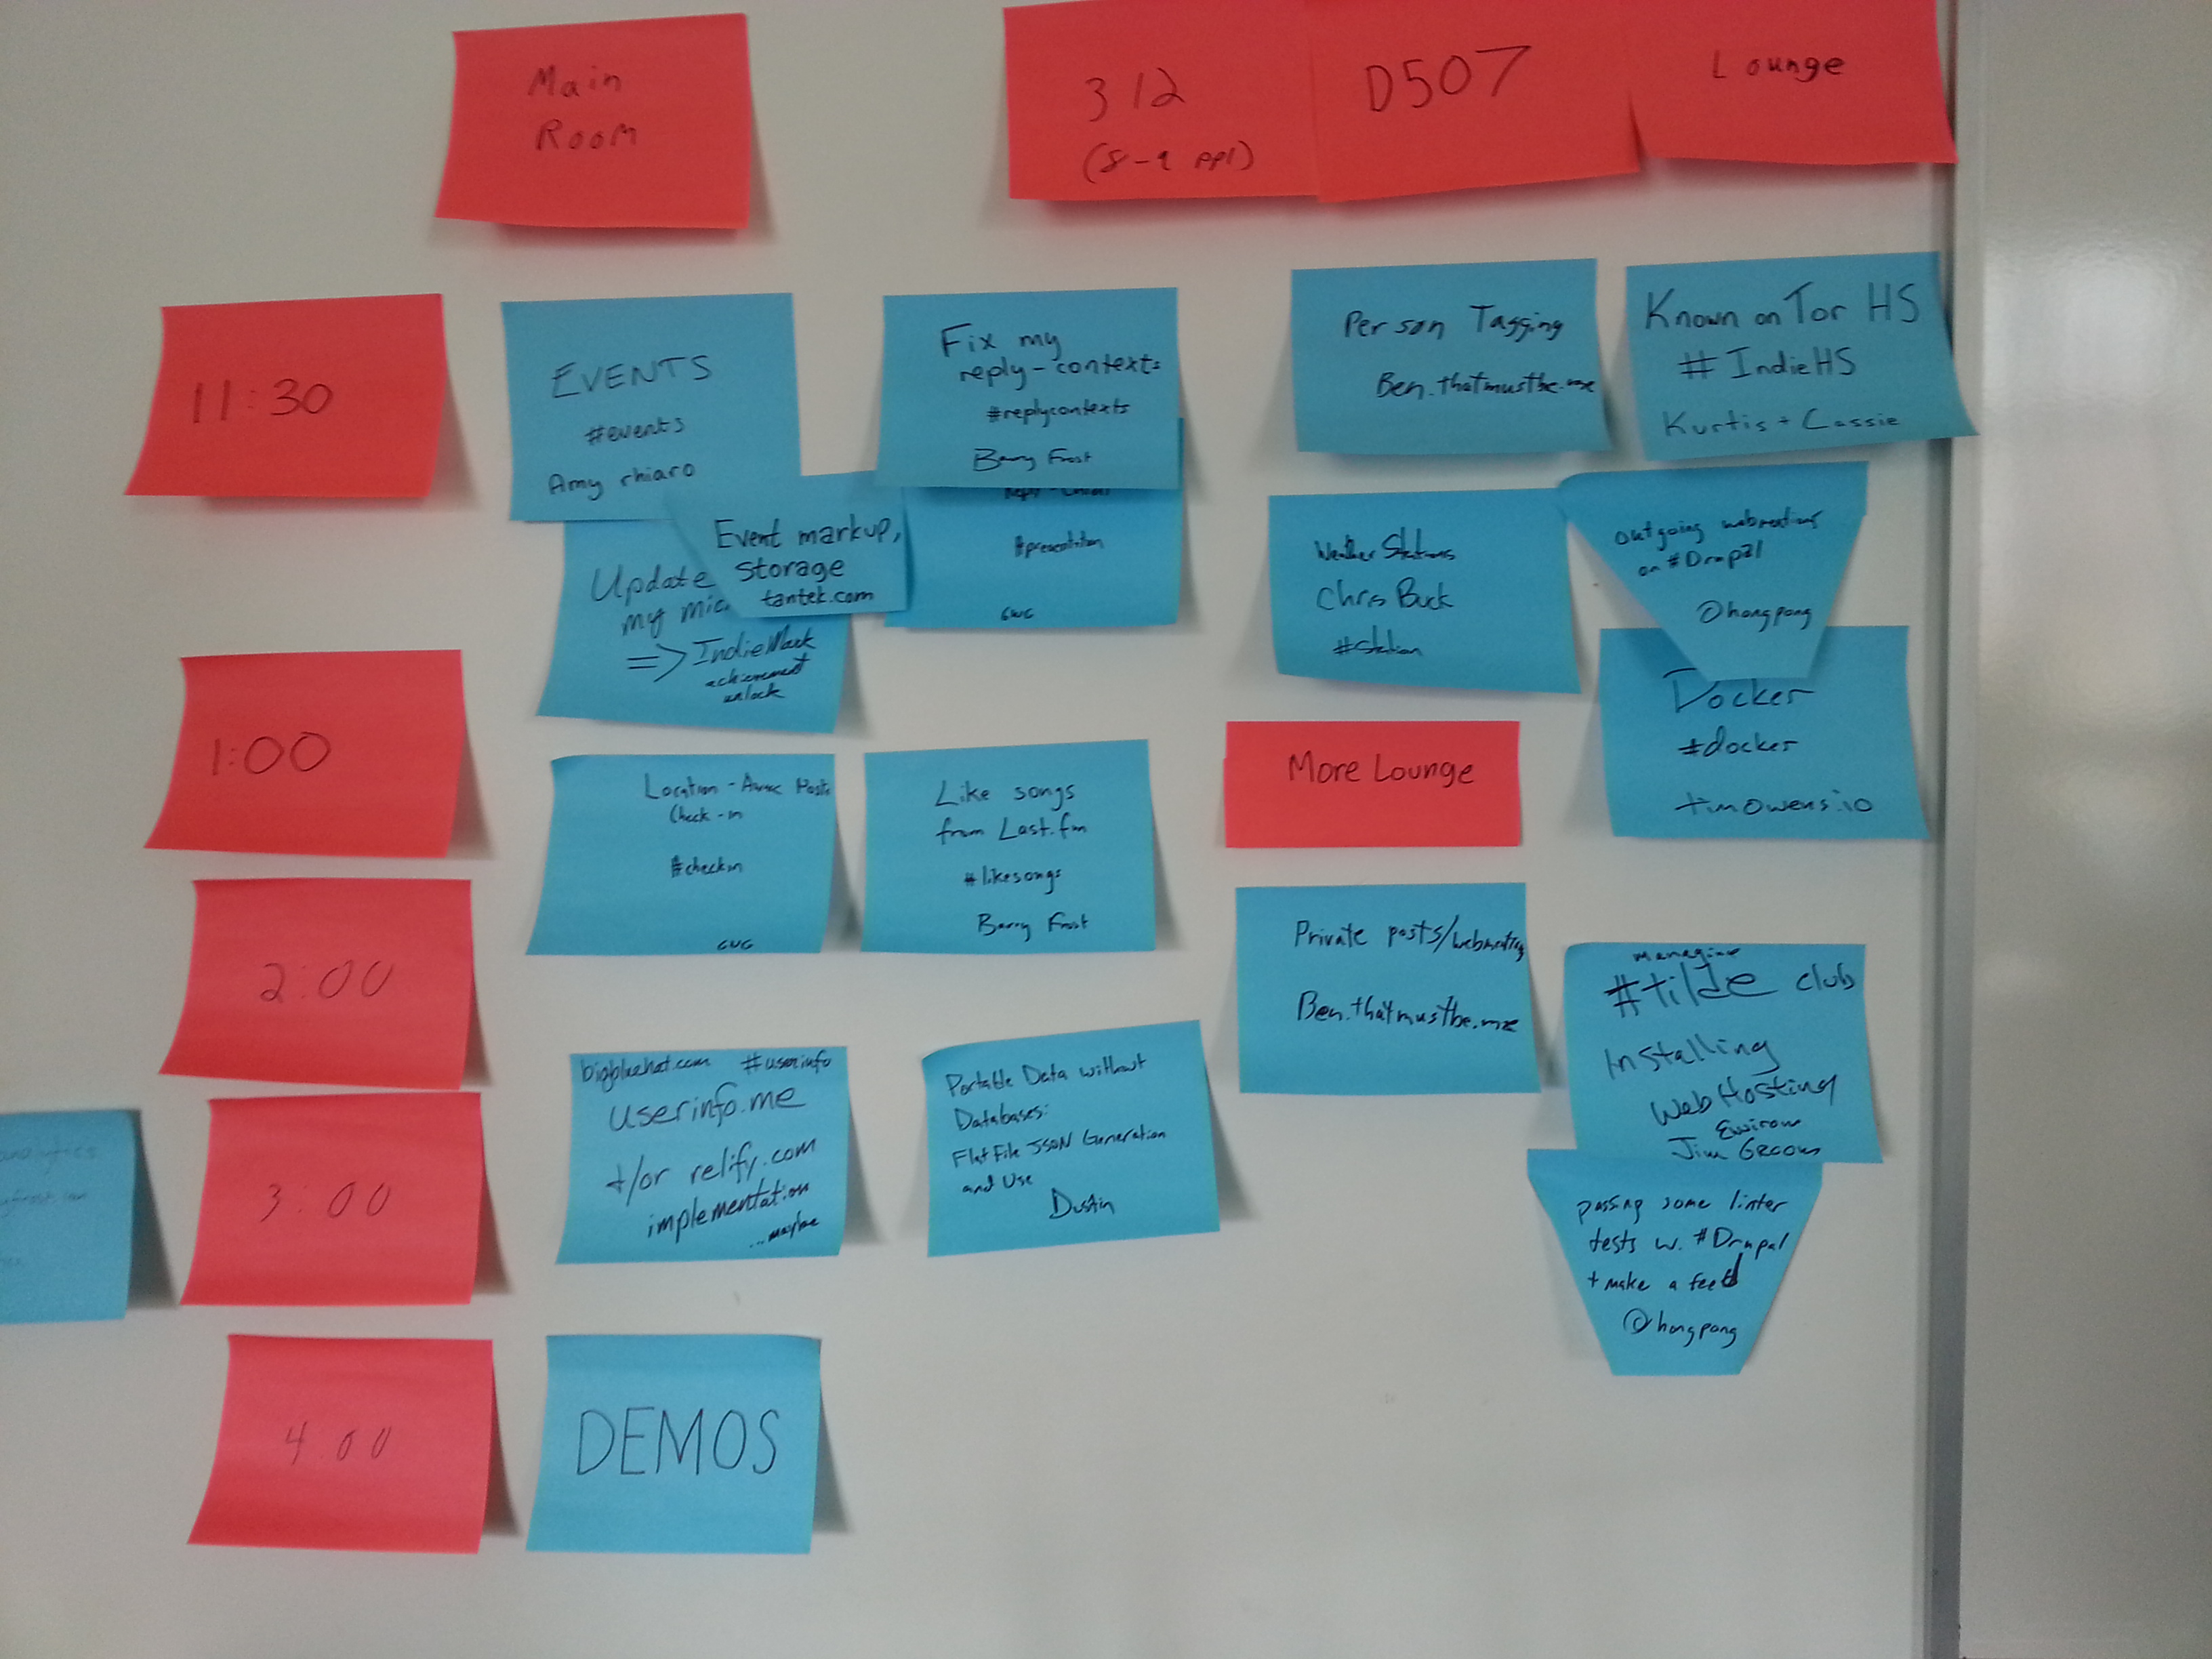 Main
Room
312
(8-9 ppl)
D507
Lounge
11:30
EVENTS
#events
Amy rhiaro
Fix my
reply-contexts
#replycontexts
Barry Frost
Person Tagging
Ben.thatmustbe.me
Known on Tor HS
# IndieHS
Kurtis + Cassie
Event markup,
storage
tantek.com
Update
my
=> IndieMark
achievement
unlock
#presentation
GWG
Weather Stations
Chris Buck
#station
outgoing webmentions
on #Drupal
@hongpong
1:00
Docker
#docker
timowens.io
Location-Aware Posts
Check-in
#checkin
GWG
Like songs
from Last.fm
#likesongs
Barry Frost
More Lounge
2:00
Private posts/webmention
Ben.thatmustbe.me
managing
#tilde club
Installing
WebHosting
Environ
Jim Groom
3:00
bigbluehat.com #userinfo
userinfo.me
+/or relify.com
implementation
...maybe
Portable Data without
Databases:
Flat File JSON Generation
and Use
Dustin
analytics
passing some linter
tests w. #Drupal
+ make a feed
@hongpong
4:00
DEMOS